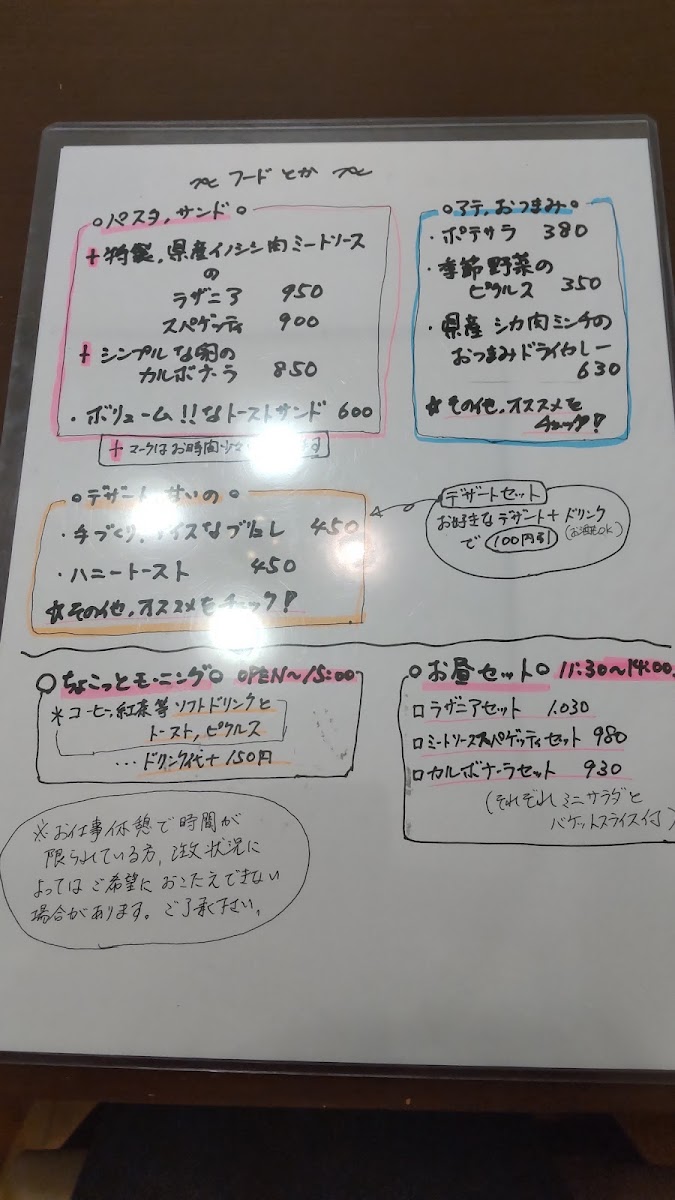 フードとか
パスタ、サンド
特製、県産イノシシ肉ミートソース
の
ラザニア 950
スパゲッティ 900
シンプルな卵の
カルボナーラ 850
・ボリューム!!なトーストサンド 600
マークはお時間少々
アテ、おつまみ
・ポテサラ 380
・季節野菜の
ピクルス 350
・県産シカ肉ミンチの
おつまみドライカレー
630
☆その他、オススメを
チェック!
デザート、甘いの
・手づくりアイスなプリン 450
・ハニートースト 450
☆その他、オススメをチェック!
デザートセット
お好きなデザート+ドリンク
(お酒もOK)
で 100円引
ちょこっとモーニング OPEN~15:00
※コーヒー、紅茶等ソフトドリンクと
トースト、ピクルス
…ドリンク代+150円
お昼セット 11:30~14:00
□ラザニアセット 1,030
□ミートソーススパゲッティセット 980
□カルボナーラセット 930
(それぞれミニサラダと
バケットスライス付)
※お仕事休憩で時間が
限られている方、注文状況に
よってはご希望におこたえできない
場合があります。ご了承下さい。